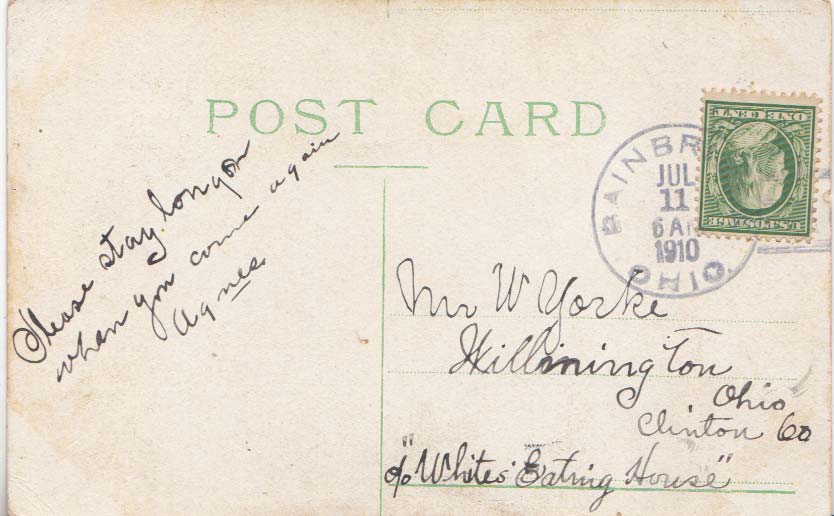 POST CARD
Please stay longer
when you come again
Agnes.
BAINBR
JUL
11
6 AM
1910
OHIO.
ONE CENT
U.S. POSTAGE
Mr W Yorke
Willimington
Ohio
Clinton Co
"c/o Whites' Eating House"